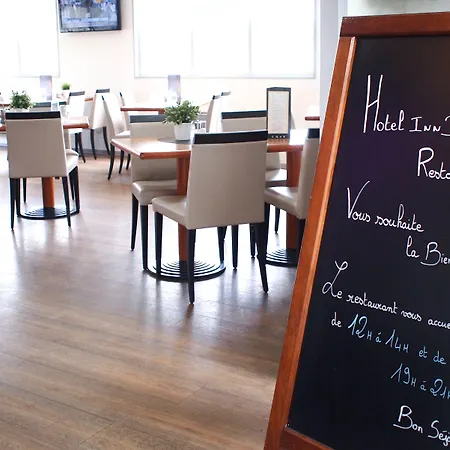 Hotel Inn
Resta
Vous souhaite
la Bien
Le restaurant vous accue
de 12H à 14H et de
19H à 21H
Bon Séj